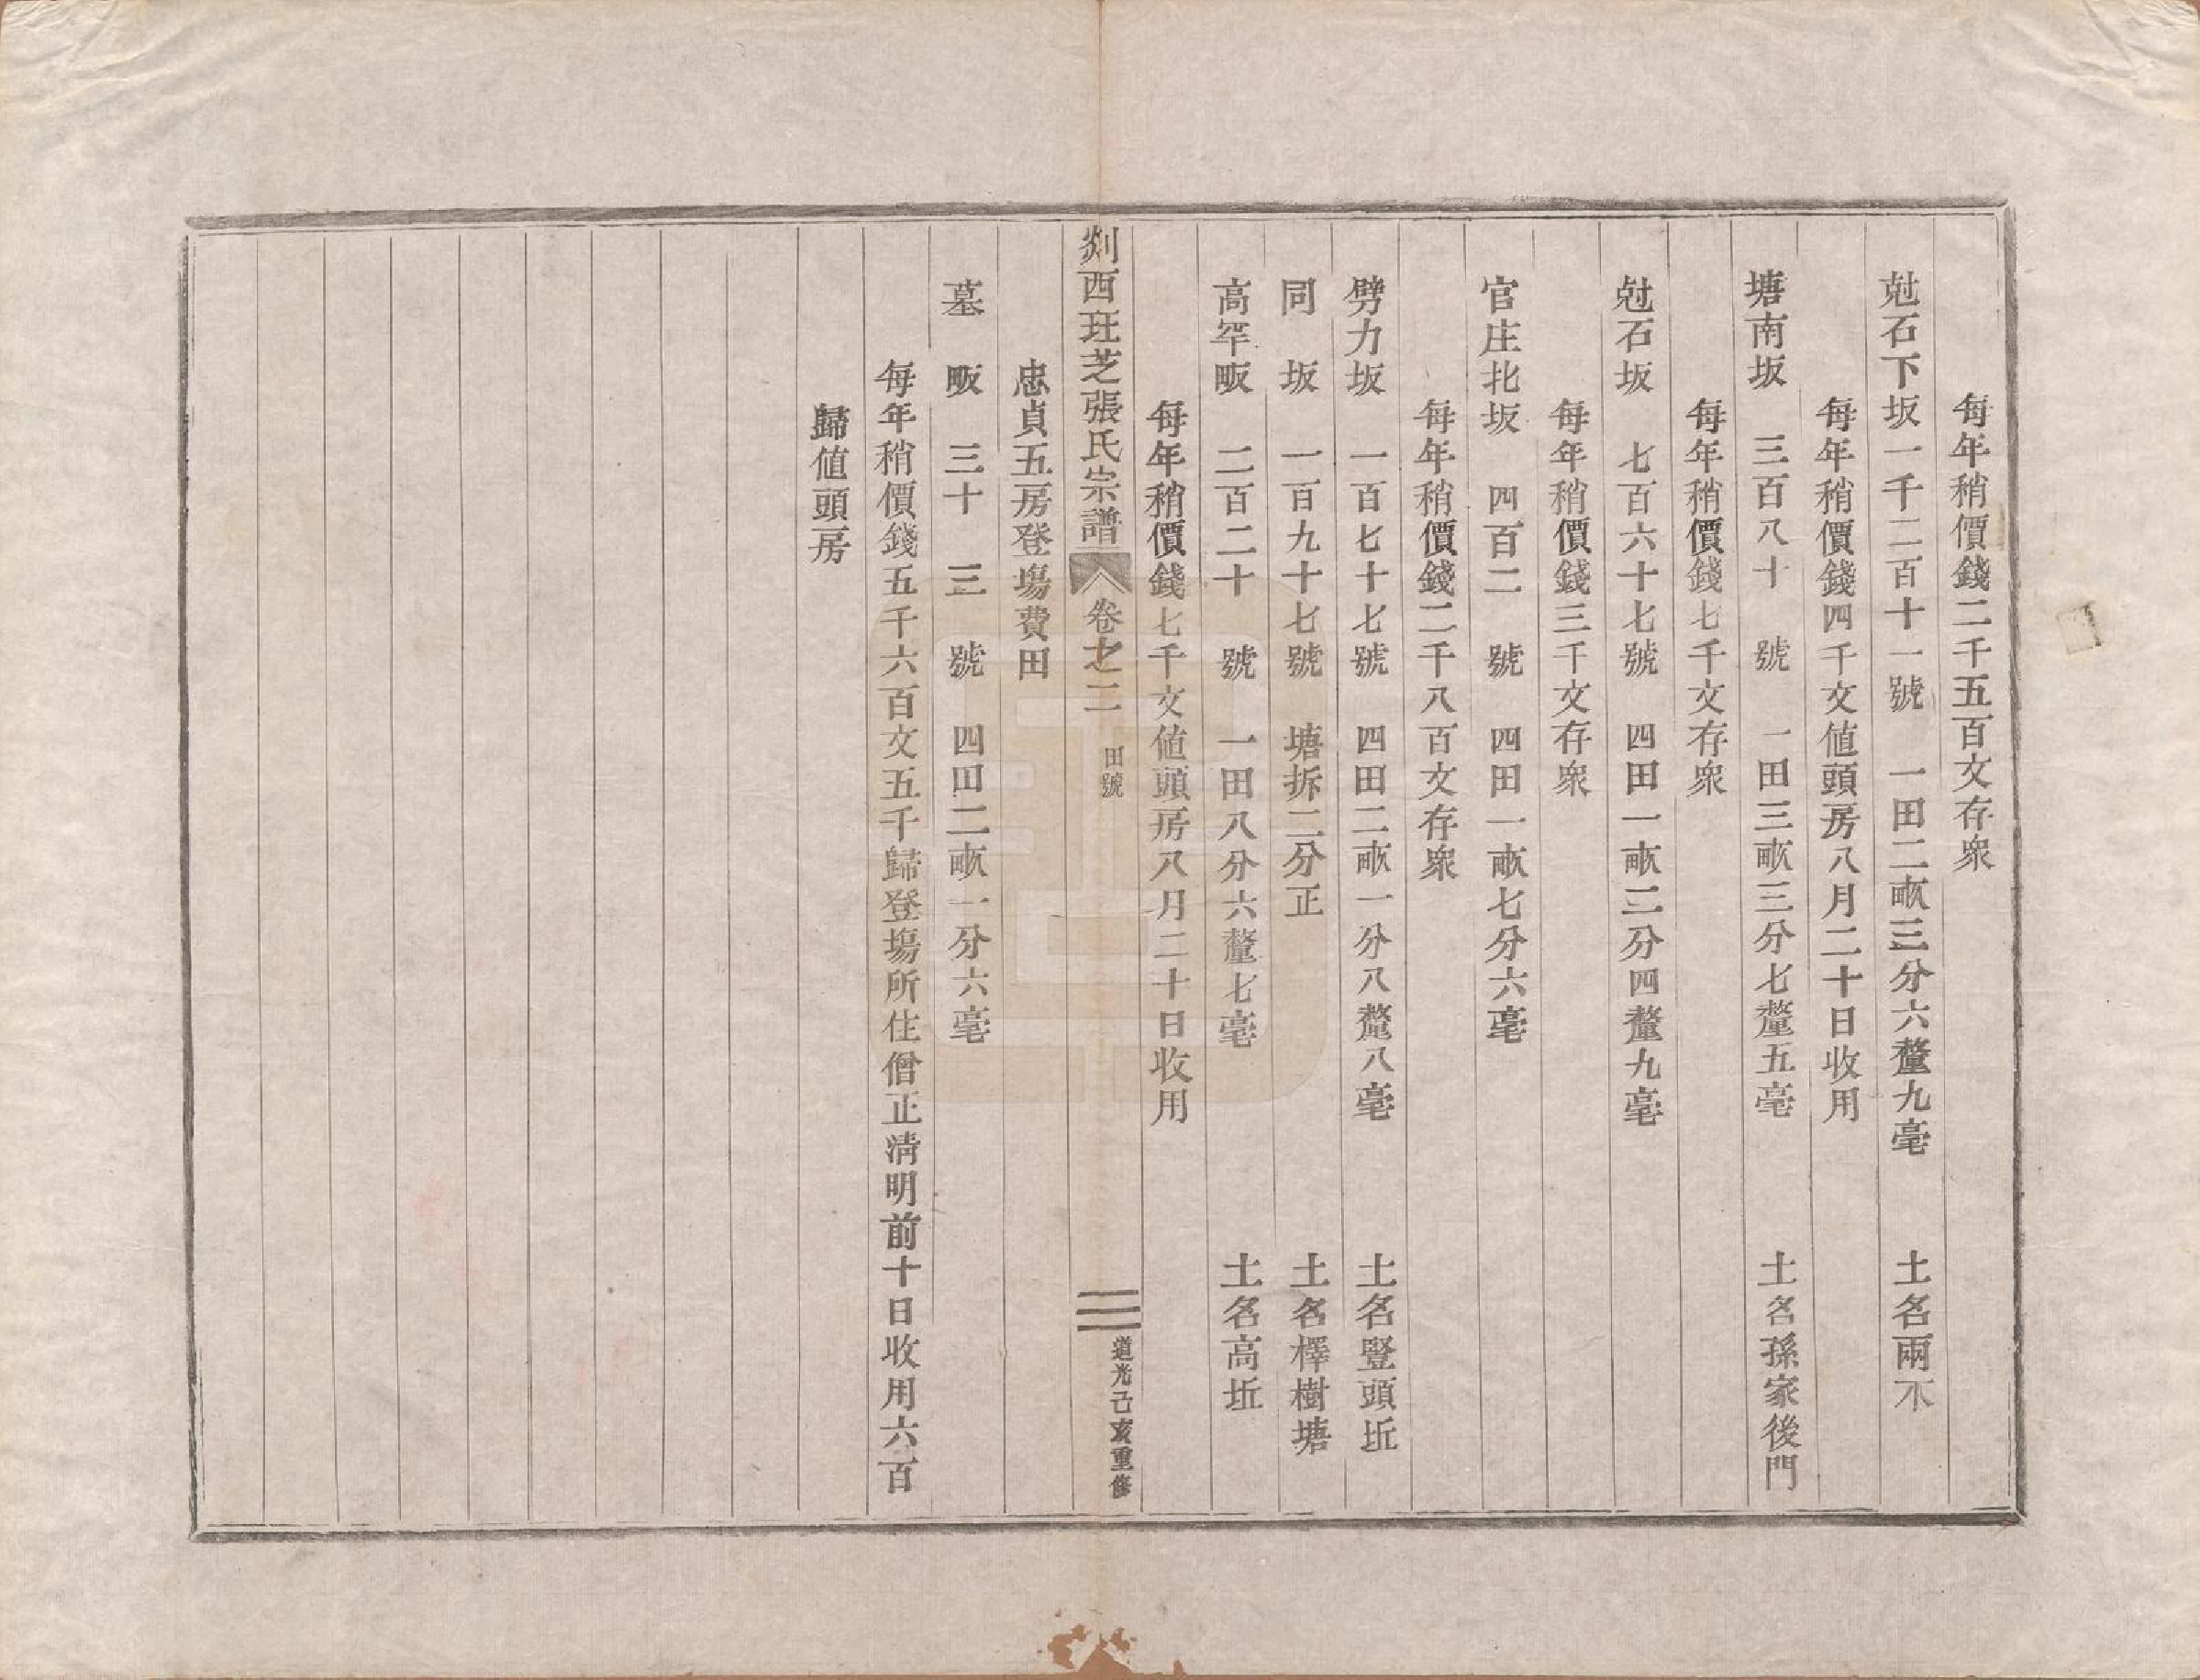 每年稍價錢二千五百文存衆
尅石下坂一千二百十一號　一田二畝三分六釐九毫　土名兩不
每年稍價錢四千文値頭房八月二十日收用
塘南坂　三百八十　號　一田三畝三分七釐五毫　土名孫家後門
每年稍價錢七千文存衆
尅石坂　七百六十七號　四田一畝二分四釐九毫
每年稍價錢三千文存衆
官庄北坂　四百二　號　四田一畝七分六毫
每年稍價錢二千八百文存衆
劈力坂　一百七十七號　四田二畝一分八釐八毫　土名豎頭坵
同　坂　一百九十七號　塘拆二分正　土名檡樹塘
高罕畈　二百二十　號　一田八分六釐七毫　土名高坵
每年稍價錢七千文値頭房八月二十日收用
剡西珏芝張氏宗譜　卷之二　田號　三　道光己亥重修
忠貞五房登塲費田
墓　畈　三十　三　號　四田二畝一分六毫
每年稍價錢五千六百文五千歸登塲所住僧正淸明前十日收用六百
歸値頭房